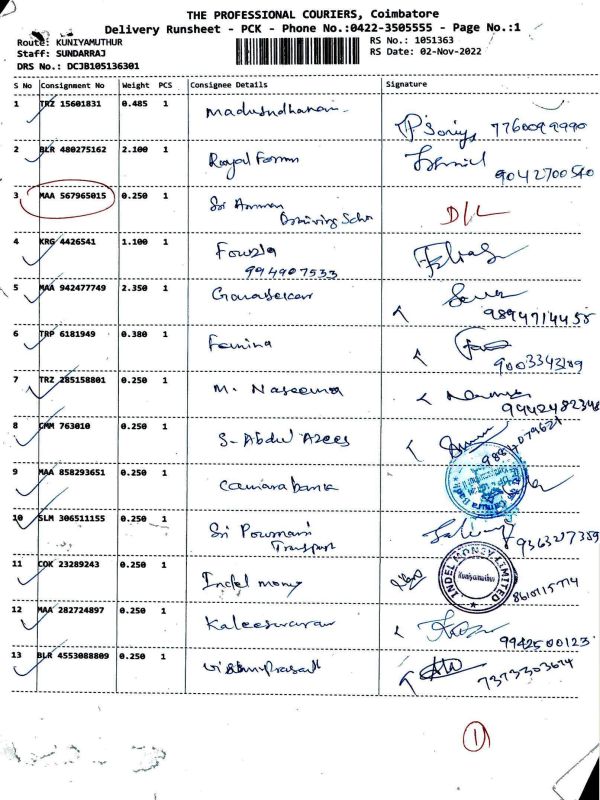 THE PROFESSIONAL COURIERS, Coimbatore
Delivery Runsheet - PCK - Phone No.:0422-3505555 - Page No.:1
Route: KUNIYAMUTHUR
RS No.: 1051363
Staff: SUNDARRAJ
RS Date: 02-Nov-2022
DRS No.: DCJB105136301
S No Consignment No Weight PCS Consignee Details Signature
1 TRZ 15601831 0.485 1 Madusudhanan
7760099990
2 BLR 480275162 2.100 1 Royal Farm
9042700540
3 MAA 567965015 0.250 1 Sri Amman D/L
Driving
4 KRG 4426541 1.100 1 Fowzia
994907533
5 MAA 942477749 2.350 1 Gunasekar
9894714455
6 TRP 6181949 0.380 1 Femina
9003343189
7 TRZ 285158801 0.250 1 M. Naseema
9942482346
8 CMM 763010 0.250 1 S. Abdul Azees
9884079621
9 MAA 858293651 0.250 1 Canara bank
10 SLM 306511155 0.250 1 Sri Powrnami
Transport
9363277359
11 COK 23289243 0.250 1 Indel money
INDEL MONEY LIMITED
Kuniyamuthur
8610115774
12 MAA 282724897 0.250 1 Kaleeswaran
9942500123
13 BLR 4553088809 0.250 1 Vishnu Prasath
7373303674
1